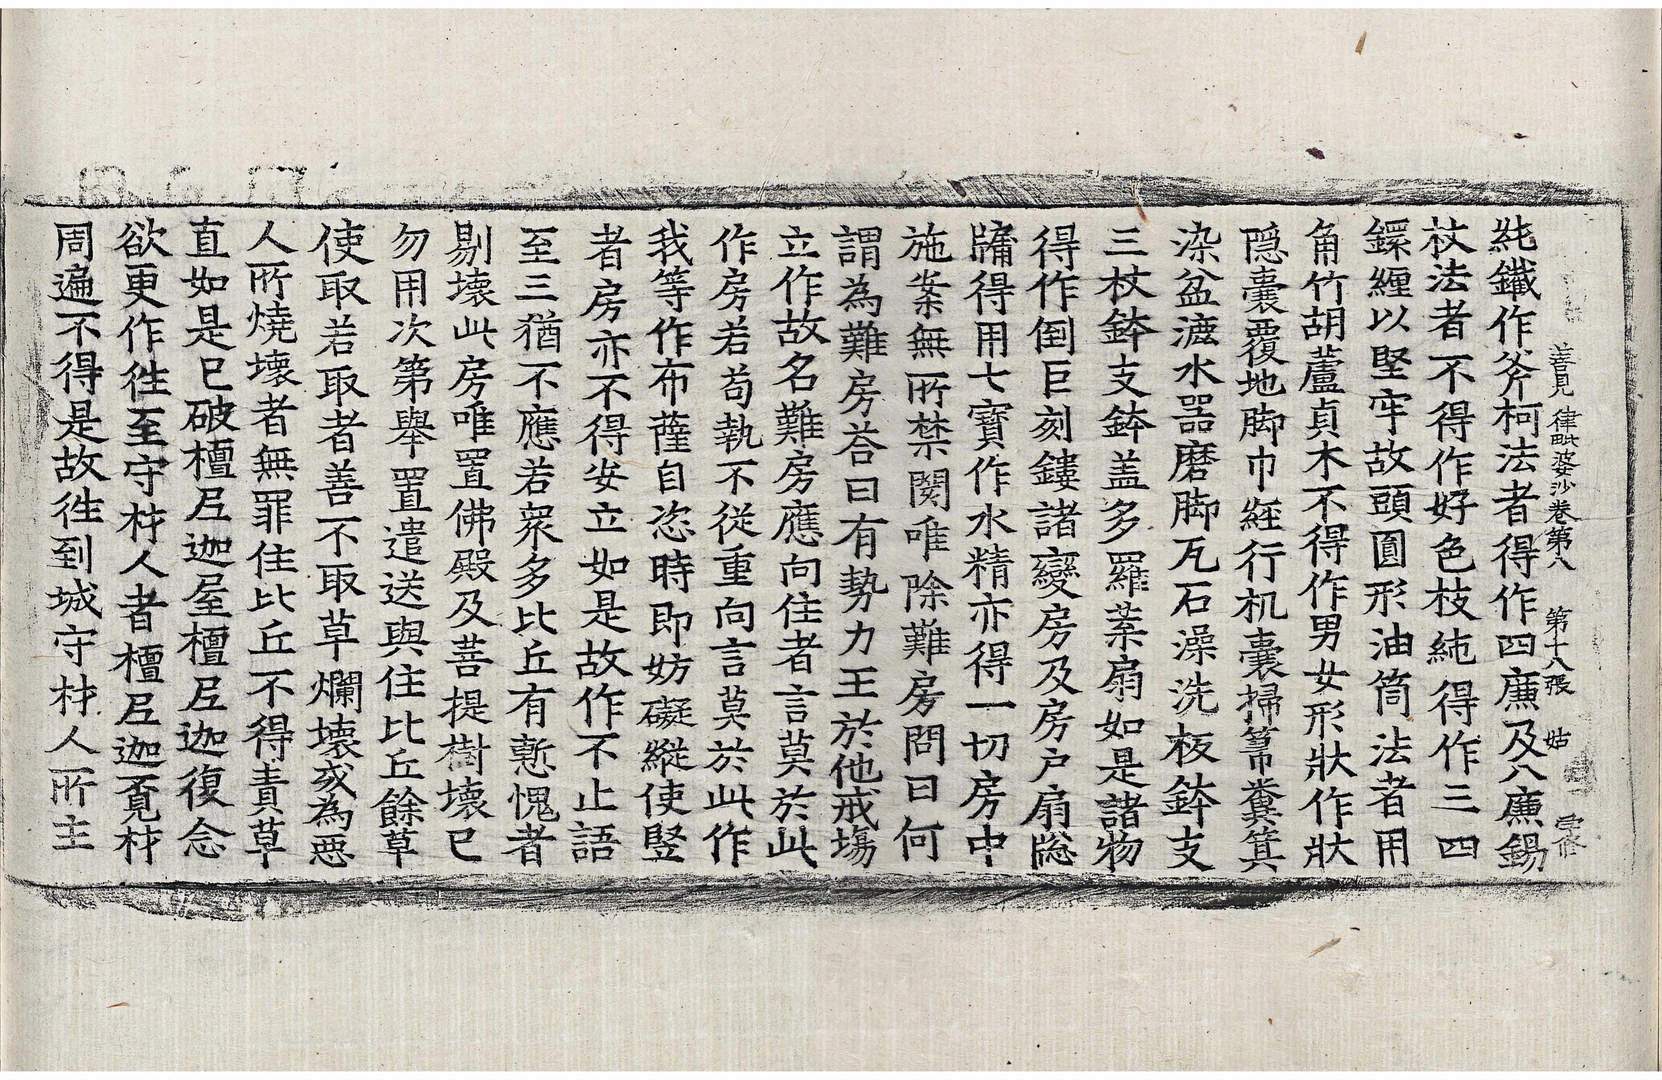 善見律毗婆沙卷第八 第十八張 姑
純鐵作斧柯法者得作四廉及八廉錫
杖法者不得作好色枝純得作三四
鏍纏以堅牢故頭圓形油筒法者用
角竹胡蘆貞木不得作男女形狀作狀
隱囊覆地脚巾經行机囊掃箒糞箕
染盆漉水器磨脚瓦石澡洗板鉢支
三杖鉢支鉢盖多羅葉扇如是諸物
得作倒巨刻鏤諸變房及房户扇牎
牗得用七寶作水精亦得一切房中
施案無所禁閡唯除難房問曰何
謂為難房荅曰有勢力王於他戒塲
立作故名難房應向住者言莫於此
作房若苟執不從重向言莫於此作
我等作布薩自恣時即妨礙縱使竪
者房亦不得安立如是故作不止語
至三猶不應若衆多比丘有慙愧者
剔壞此房唯置佛殿及菩提樹壞已
勿用次第舉置遣送與住比丘餘草
使取若取者善不取草爛壞或為惡
人所燒壞者無罪住比丘不得責草
直如是已破檀尼迦屋檀尼迦復念
欲更作徃至守材人者檀尼迦覔材
周遍不得是故徃到城守材人所主